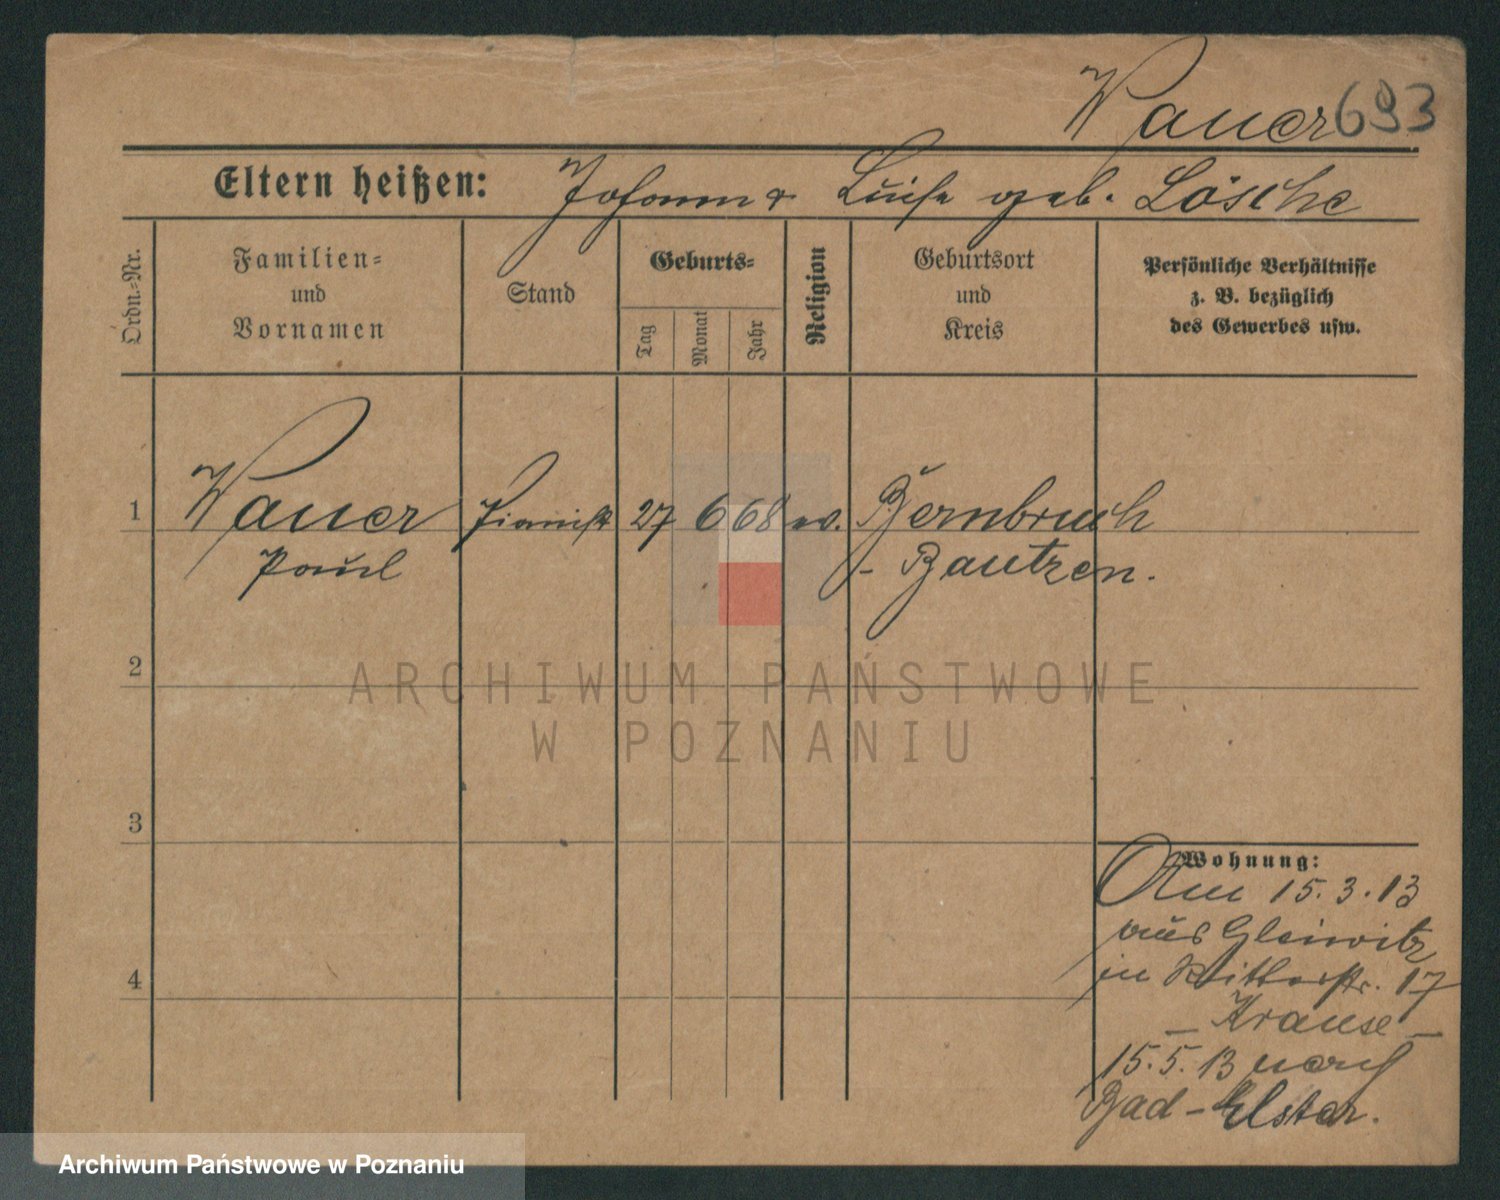 Wauer 693
Eltern heißen: Johann & Luise geb. Lösche
Ordn.-Nr.
Familien=
und
Vornamen
Stand
Geburts=
Tag
Monat
Jahr
Religion
Geburtsort
und
Kreis
Persönliche Verhältnisse
z. B. bezüglich
des Gewerbes usw.
1 Wauer Pianist 27 6 68 ev. Bernbruch
Paul - Bautzen.
2
ARCHIWUM PAŃSTWOWE
W POZNANIU
3
Wohnung:
Am 15.3.13
aus Gleiwitz
4
in Ritterstr. 17
- Krause -
15.5.13 nach
Bad-Elster.
Archiwum Państwowe w Poznaniu